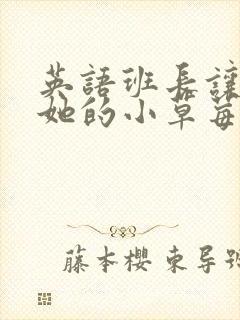 英語班長讓
她的小草每
藤本櫻 東导